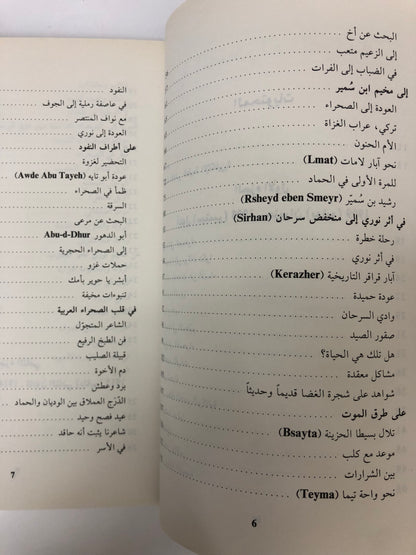 البحث عن أخ
إلى الزعيم متعب
في الضباب إلى الفرات
إلى مخيم ابن سُمير
العودة إلى الصحراء
تركي، عراب الغزاة
الأم الحنون
نحو آبار لامات (Lmat)
للمرة الأولى في الحماد
رشيد بن سُميّر (Rsheyd eben Smeyr)
في أثر نوري إلى منخفض سرحان (Sirhan)
رحلة خطرة
في أثر نوري
آبار قراقر التاريخية (Kerazher)
عودة حميدة
وادي السرحان
صقور الصيد
هل تلك هي الحياة؟
مشاكل معقدة
شواهد على شجرة الغضا قديماً وحديثاً
على طرق الموت
تلال بسيطا الحزينة (Bsayta)
موعد مع كلب
بين الشرارات
نحو واحة تيما (Teyma)
6
النفود
في عاصفة رملية إلى الجوف
مع نواف المنتصر
العودة إلى نوري
على أطراف النفود
التحضير لغزوة
عودة أبو تايه (Awde Abu Tayeh)
ظمأ في الصحراء
السرقة
البحث عن مرعى
أبو الدهور Abu-d-Dhur
إلى الصحراء الحجرية
حملات غزو
أبشر يا حوير بأمك
تنبوءات مخيفة
في قلب الصحراء العربية
الشاعر المتجوّل
فن الطبخ الرفيع
قبيلة الصليب
دم الأخوة
برد وعطش
الدَرَج العملاق بين الوديان والحماد
عيد فصح وحيد
شاعرنا يثبت أنه حاقد
في الأسر
7